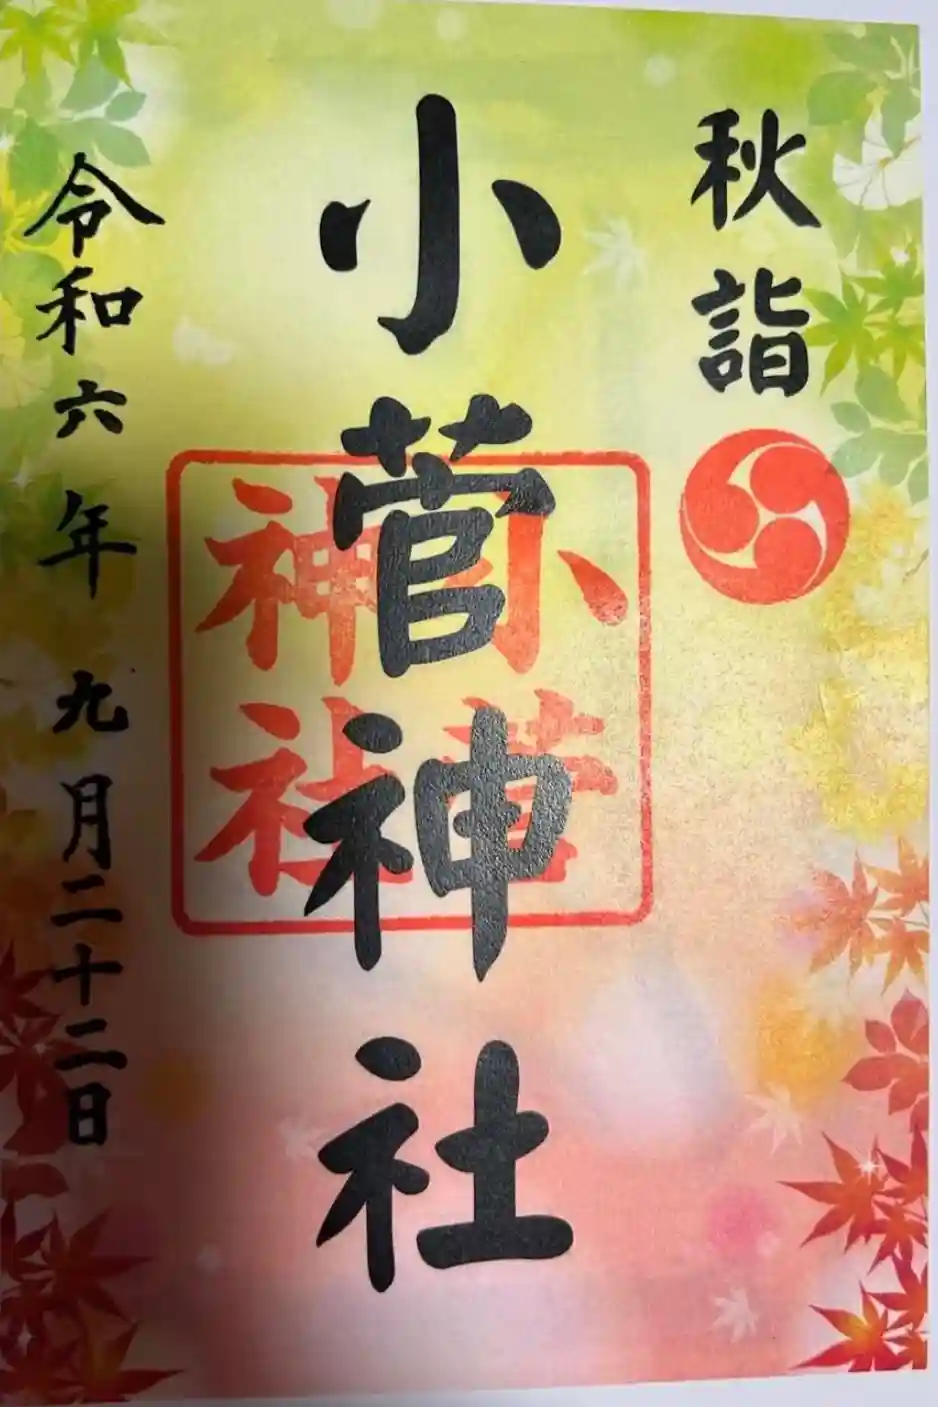 秋詣
小菅神社
小菅
神社
令和六年九月二十二日